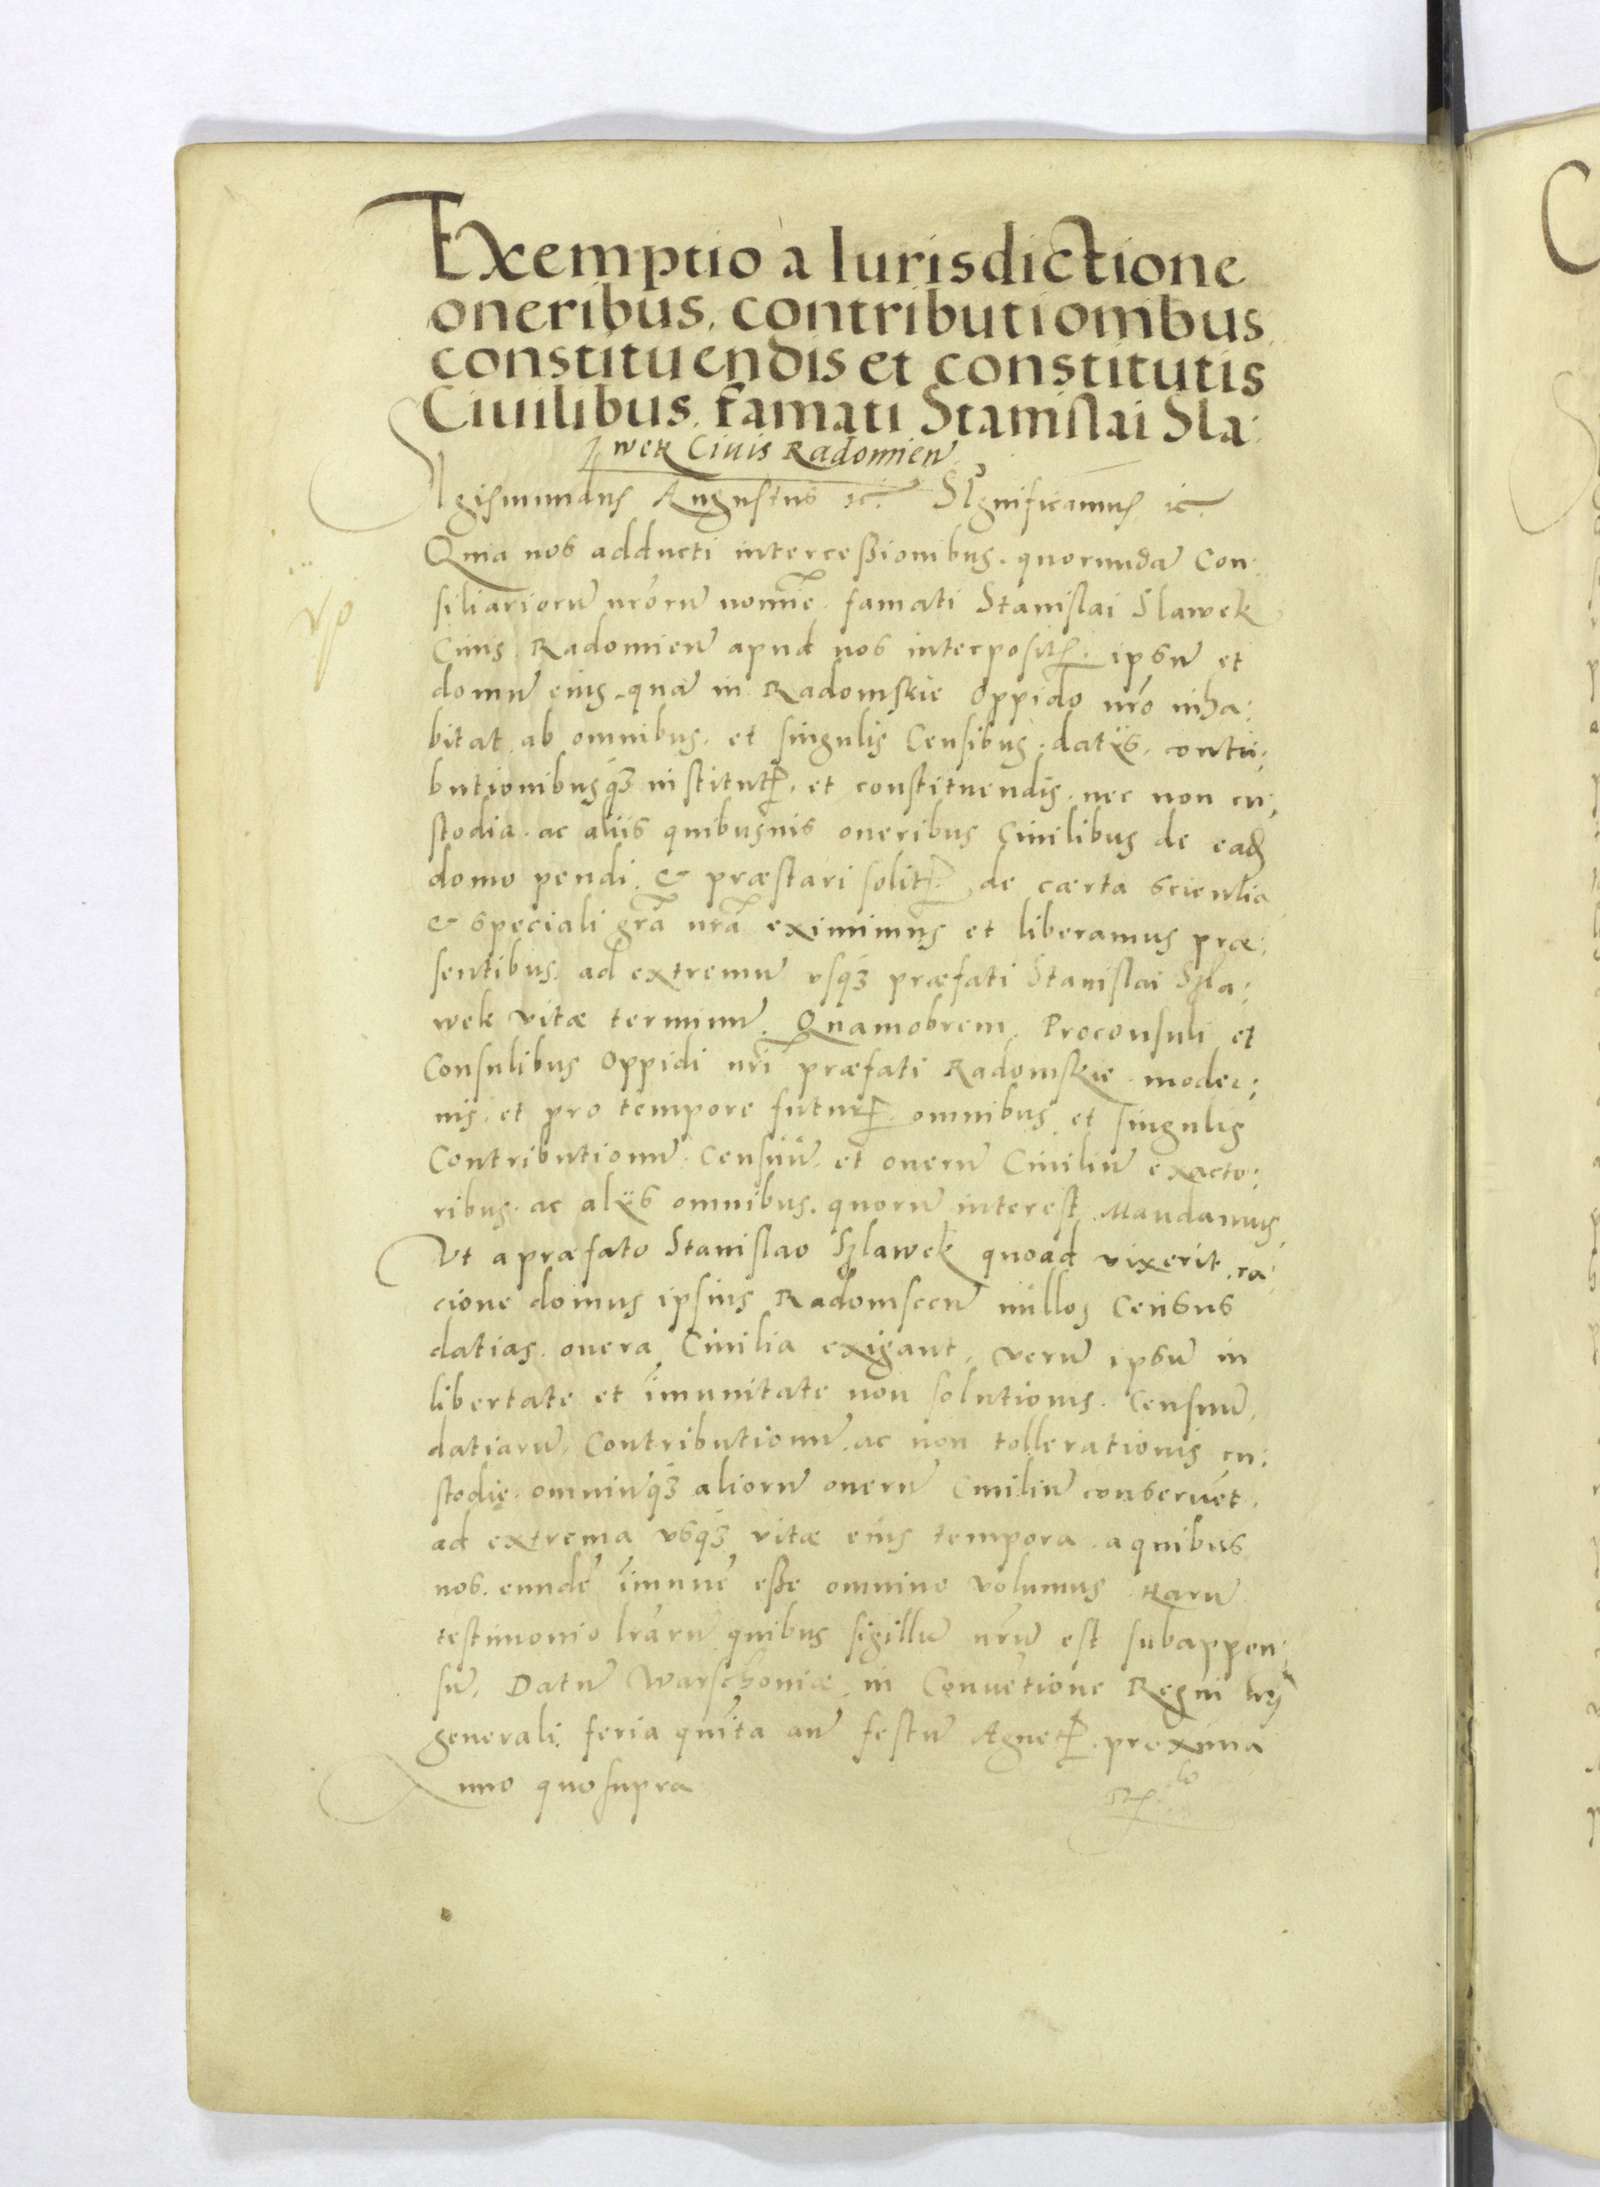 Exemptio a Iurisdictione
oneribus, contributionibus
constituendis et constitutis
Ciuilibus, famati Stanislai Sla:
wek Ciuis Radomien̄
Sigismundus Augustus ꝛc̄. Significamus ꝛc̄.
Quia nos adducti intercessionibus, quorundā Con
siliariorū nr̄orū nomīe, famati Stanislai Slawek
Ciuis Radomien̄ apud nos interpositꝭ. ipsū et
domū eius, quā in Radomskie Oppido nr̄o inha:
bitat, ab omnibus, et singulis Censibus, datijs, contri:
butionibusqꝫ institutꝭ, et constituendis, nec non cu:
stodia, ac aliis quibusuis oneribus Ciuilibus de eadē
domo pendi & præstari solitꝭ, de cærta scientia
& speciali gr̄a nr̄a eximimus et liberamus præ:
sentibus, ad extremū vsqꝫ præfati Stanislai Szla:
wek vitæ terminū. Quamobrem Proconsuli et
Consulibus Oppidi nr̄i præfati Radomskie, moder:
nis, et pro tempore futurꝭ, omnibus et singulis
Contributionū, Censuū, et onerū Ciuiliū exacto:
ribus, ac alijs omnibus, quorū interest, Mandamus
Vt a præfato Stanislao Szlawek quoad vixerit, ra:
cione domus ipsius Radomscen̄ nullos Census
datias, onera Ciuilia exigant, verū ipsū in
libertate et īmunitate non solutionis, Censuū,
datiarū, Contributionū, ac non tollerationis cu:
stodię, omniūqꝫ aliorū onerū Ciuiliū conseruēt,
ad extrema vsqꝫ vitæ eius tempora, a quibus
nos, eundē īmunē esse omnino volumus. Harū
testimonio lr̄arū quibus sigillū nr̄ū est subappen:
sū. Datū Warschouiæ, in Conuētione Regni
generali, feria quīta an̄ festū Agnetꝭ proxima
Anno quo supra